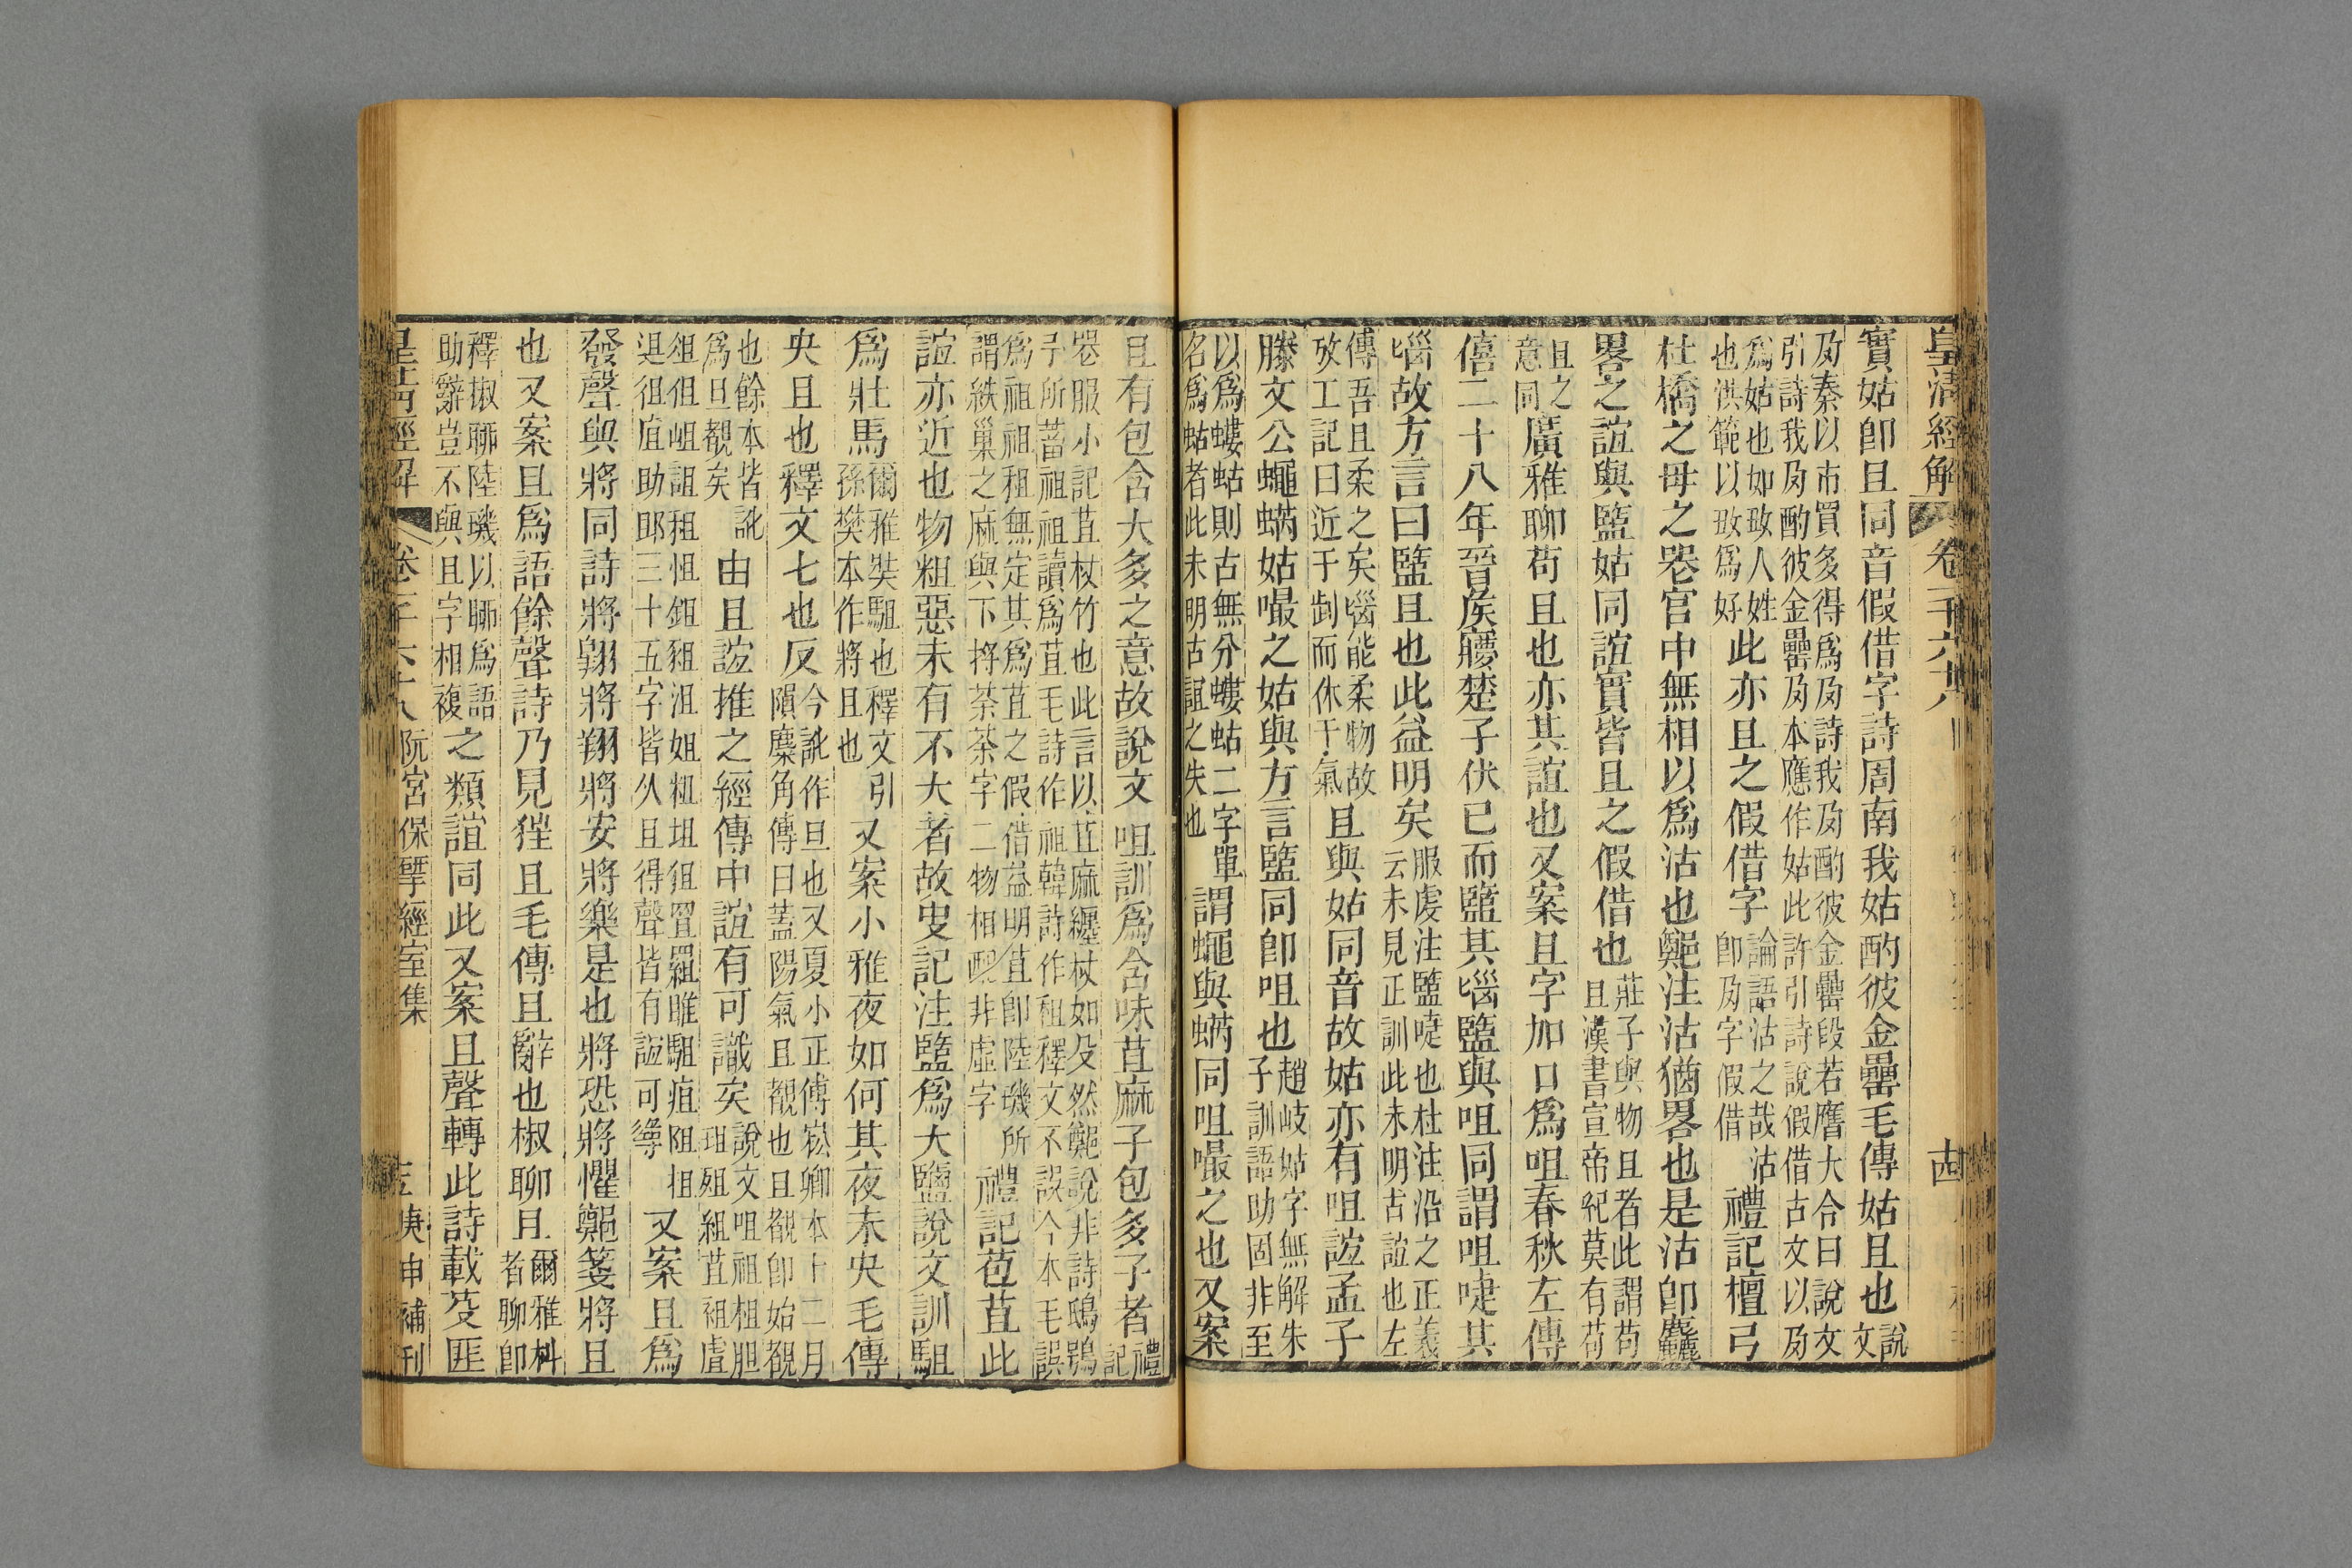 皇清經解 卷一千六十八 十四
實姑卽且同音假借字詩周南我姑酌彼金罍毛傳姑且也說文
及秦以市買多得爲及詩我及酌彼金罍段若膺大令曰說文
引詩我及酌彼金罍及本應作姑此許引詩說假借古文以及
爲姑也如㪏人姓論語沽之哉沽
也洪範以㪏爲好此亦且之假借字卽及字假借禮記檀弓
杜橋之母之喪宮中無相以爲沽也鄭注沽猶畧也是沽卽麤
畧之誼與盬姑同誼實皆且之假借也莊子與物且者此謂苟且漢書宣帝紀莫有苟
且之意同廣雅聊苟且也亦其誼也又案且字加口爲咀春秋左傳
僖二十八年晉矦㝱楚子伏已而盬其𡿺盬與咀同謂咀啑其
𡿺故方言曰盬且也此益明矣服虔注盬啑也杜注沿之正義云未見正訓此未明古誼也左
傳吾且柔之矣𡿺能柔物故
攷工記曰近于𠜜而休于氣且與姑同音故姑亦有咀誼孟子
滕文公蠅蜹姑嘬之姑與方言盬同卽咀也趙岐姑字無解朱子訓語助固非至
以爲螻蛄則古無分螻蛄二字單
名爲蛄者此未明古誼之失也謂蠅與蜹同咀嘬之也又案
且有包含大多之意故說文咀訓爲含味苴麻子包多子者禮記
喪服小記苴杖竹也此言以苴麻纏杖如殳然鄭說非詩鴟鴞
予所蓄祖祖讀爲苴毛詩作祖韓詩作租釋文不誤今本毛誤
爲祖祖租無定其爲苴之假借益明苴卽陸璣所
謂紩巢之麻與下捋荼荼字二物相配非虛字禮記苞苴此
誼亦近也物粗惡未有不大者故叓記注盬爲大鹽說文訓駔
爲壯馬爾雅奘駔也釋文引孫樊本作將且也又案小雅夜如何其夜未央毛傳
央且也釋文七也反今訛作旦也又夏小正傅崧卿本十二月隕麋角傳曰蓋陽氣且覩也且覩卽始覩
也餘本皆訛
爲旦覩矣由且誼推之經傳中誼有可識矣說文咀祖柤胆珇殂組苴䄕虘
俎伹岨詛租怚鉏豠沮姐粗坥狙罝䍉雎駔疽阻抯
㳡徂疽助耶三十五字皆从且得聲皆有誼可㝷又案且爲
發聲與將同詩將翱將翔將安將樂是也將恐將懼鄭箋將且
也又案且爲語餘聲詩乃見狂且毛傳且辭也椒聊且爾雅朻者聊卽
釋椒聊陸璣以聊爲語
助辭豈不與且字相複之類誼同此又案且聲轉此詩載芟匪
皇清經解 卷一千六十八 阮宮保揅經室集 庚申補刊